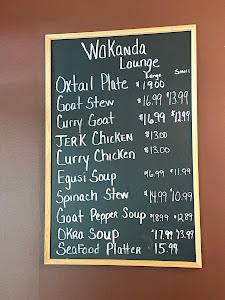 Wakanda
Lounge
Large Small
Oxtail Plate $19.00
Goat Stew $16.99 $13.99
Curry Goat $16.99 $12.99
JERK Chicken $13.00
Curry Chicken $13.00
Egusi Soup $16.99 $11.99
Spinach Stew $14.99 $10.99
Goat Pepper Soup $18.99 $12.89
OKRa Soup $17.99 $13.99
Seafood Platter 15.99